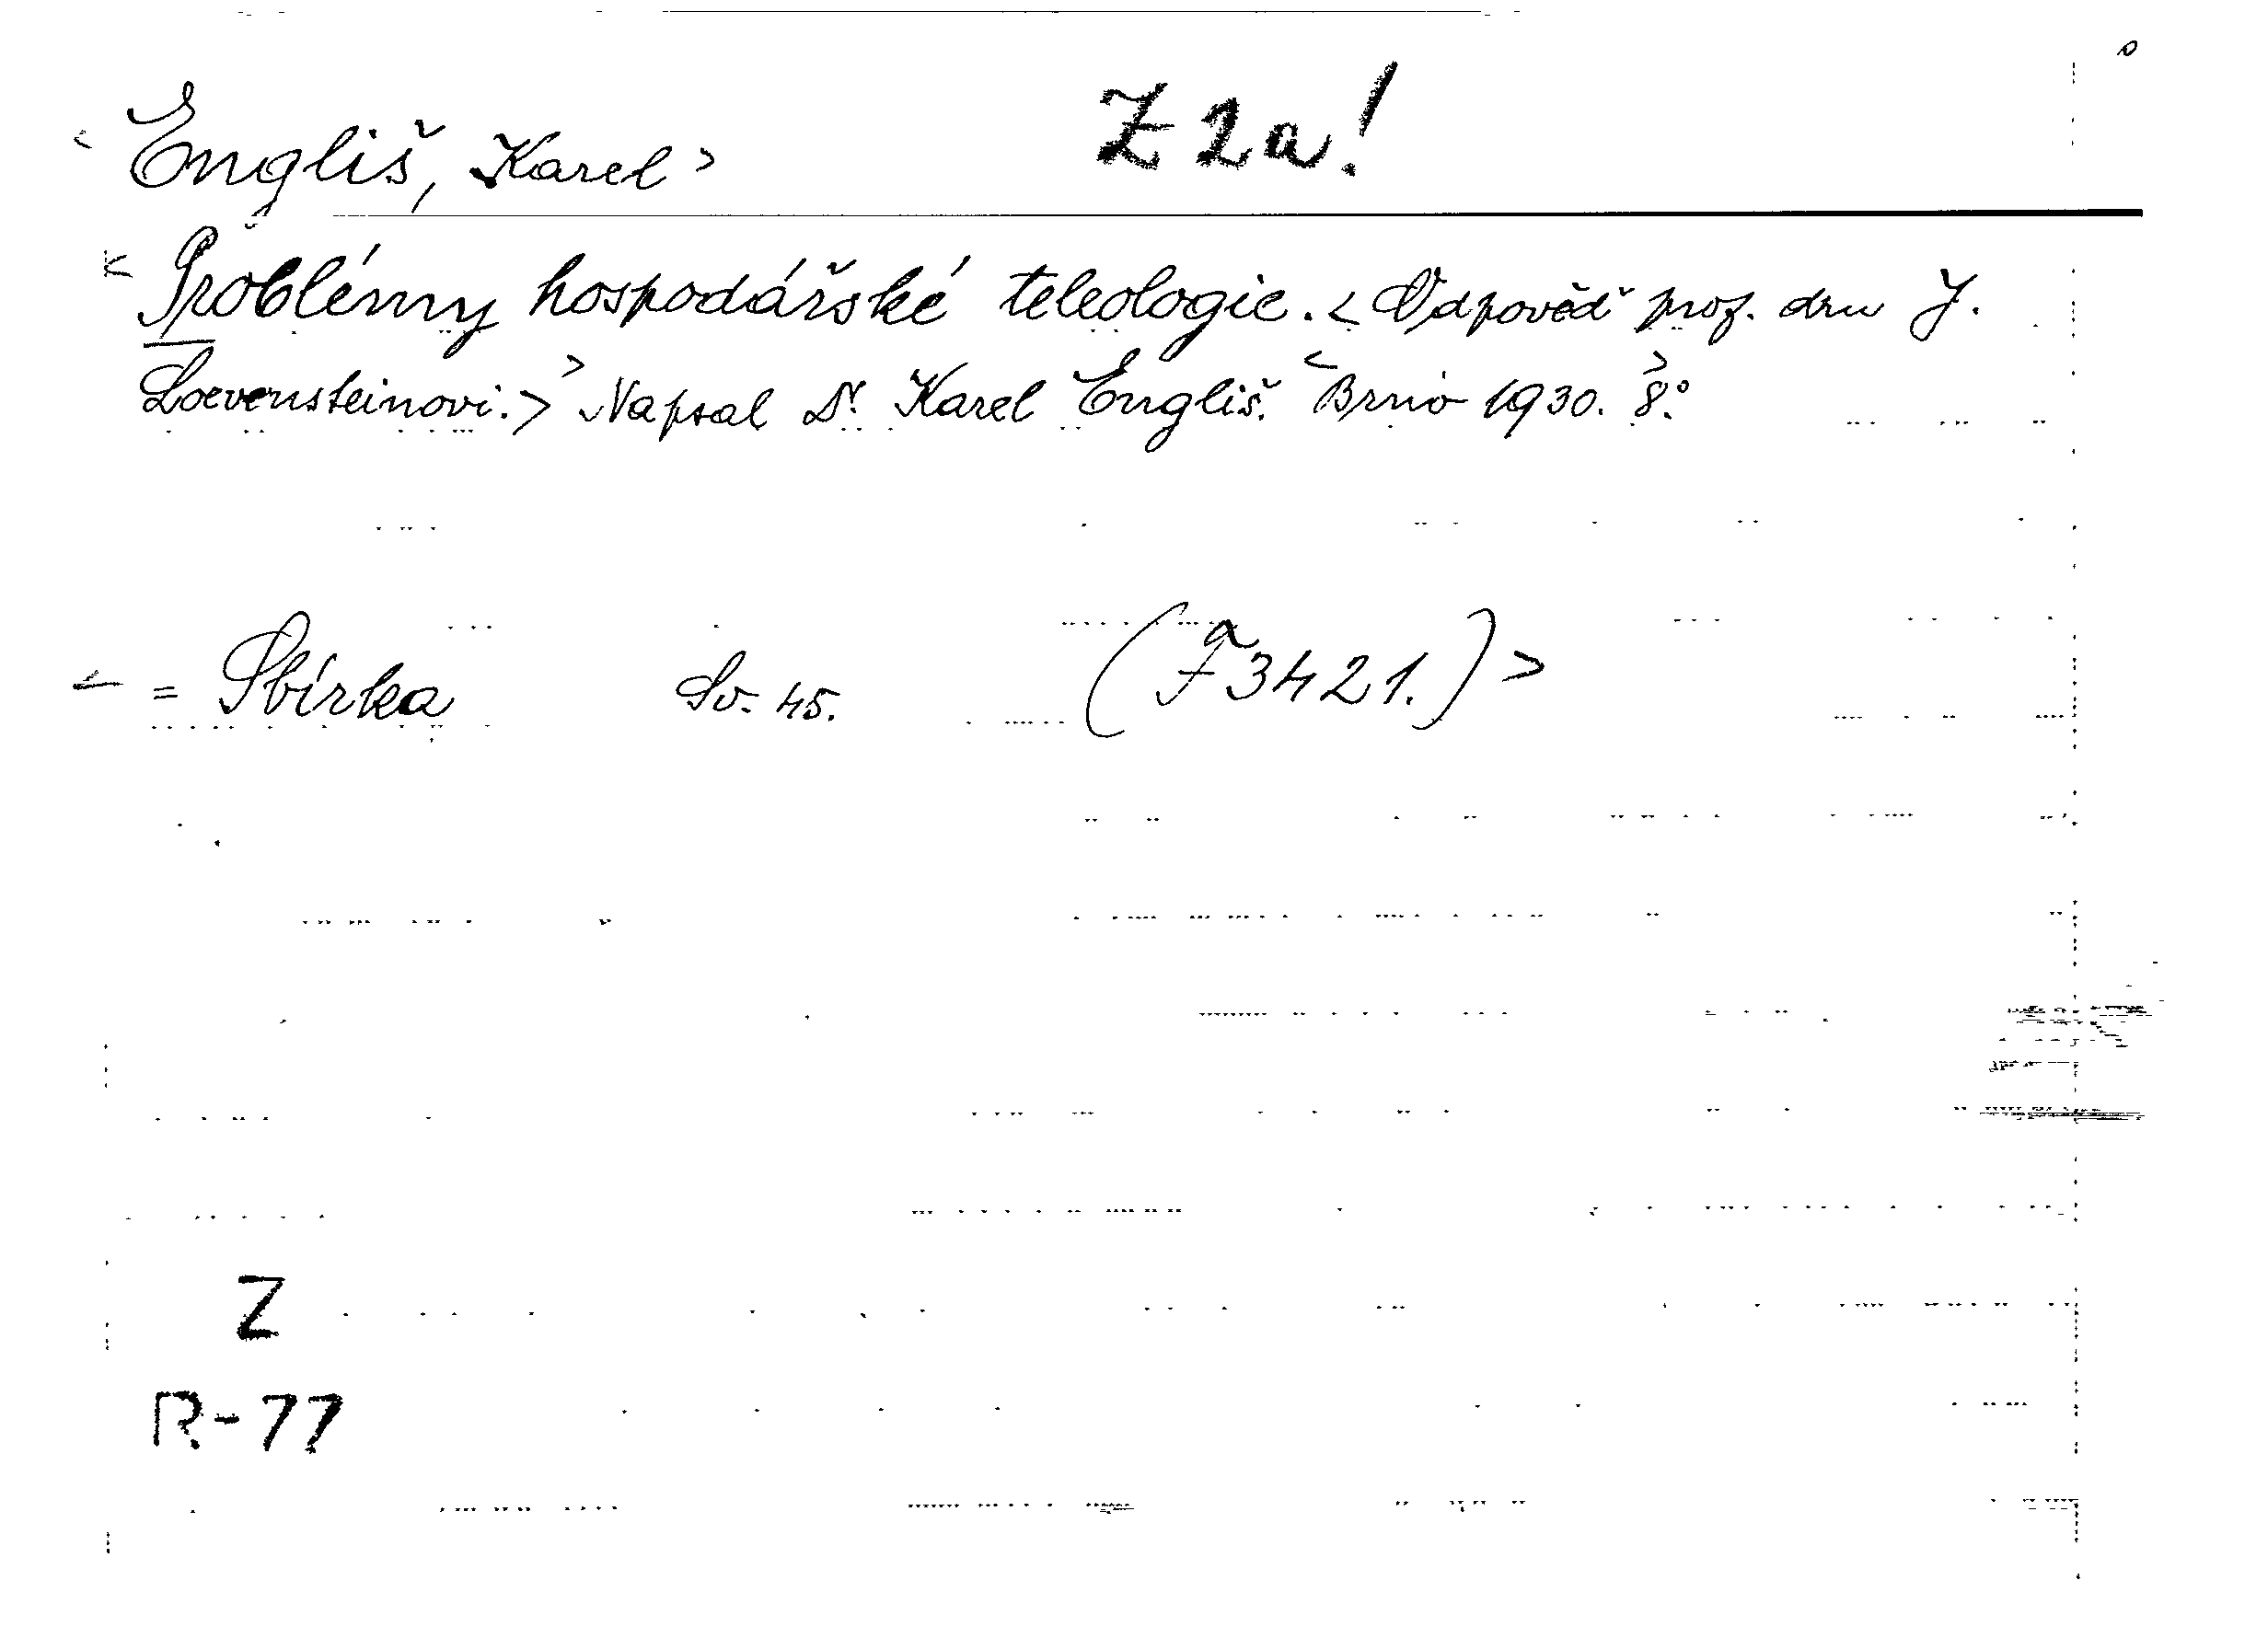 < Engliš, Karel > Z 2a!
< Problémy hospodářské teleologie. < Odpověď prof. dru J.
Loevensteinovi. > > Napsal Dr. Karel Engliš. < Brno 1930. 8.° >
< = Sbírka Sv. 45. (F 3421.) >
Z
R-77